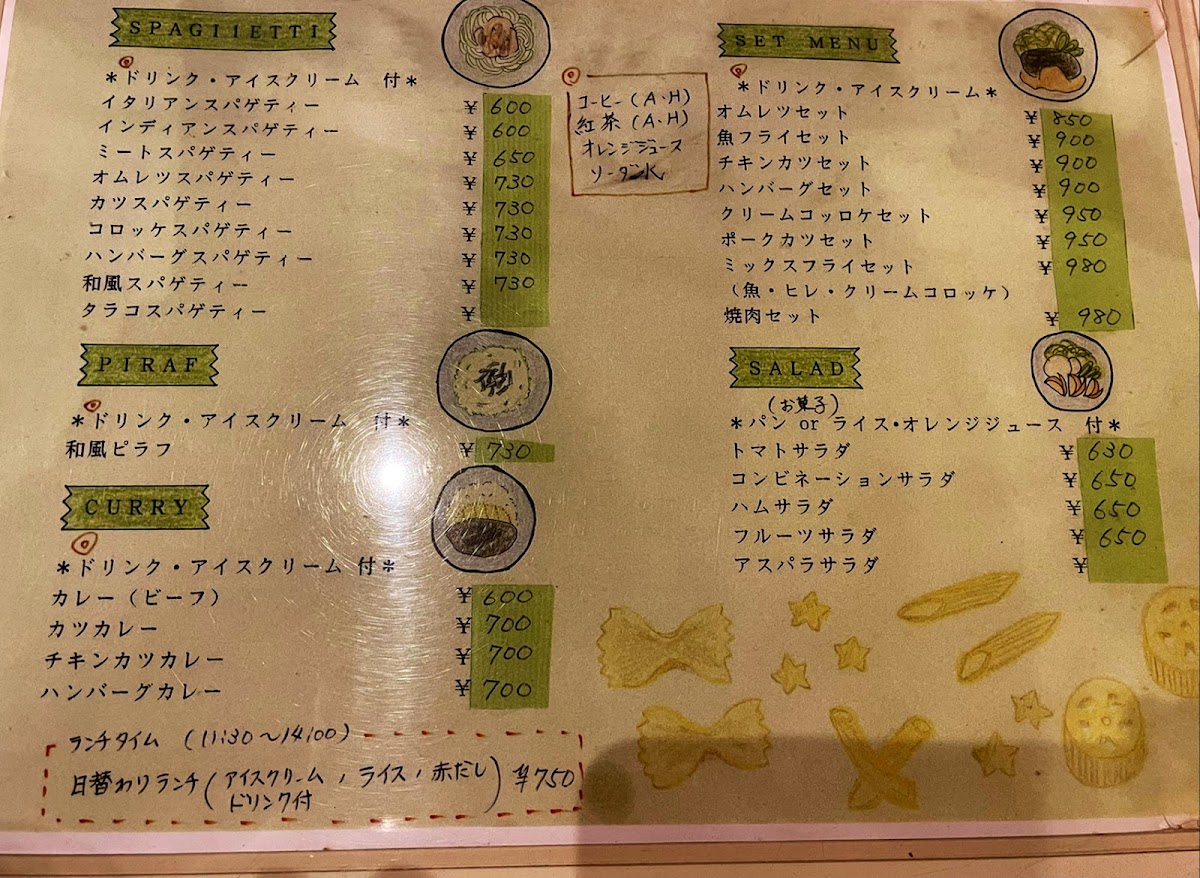 SPAGHETTI
*ドリンク・アイスクリーム 付*
イタリアンスパゲティー ¥ 600
インディアンスパゲティー ¥ 600
ミートスパゲティー ¥ 650
オムレツスパゲティー ¥ 730
カツスパゲティー ¥ 730
コロッケスパゲティー ¥ 730
ハンバーグスパゲティー ¥ 730
和風スパゲティー ¥ 730
タラコスパゲティー ¥
PIRAF
*ドリンク・アイスクリーム 付*
和風ピラフ ¥ 730
CURRY
*ドリンク・アイスクリーム 付*
カレー（ビーフ） ¥ 600
カツカレー ¥ 700
チキンカツカレー ¥ 700
ハンバーグカレー ¥ 700
ランチタイム (11:30～14:00)
日替わりランチ(アイスクリーム, ライス, 赤だし) ¥750
ドリンク付
コーヒー(A・H)
紅茶(A・H)
オレンジジュース
ソーダ水
SET MENU
*ドリンク・アイスクリーム*
オムレツセット ¥ 850
魚フライセット ¥ 900
チキンカツセット ¥ 900
ハンバーグセット ¥ 900
クリームコッロケセット ¥ 950
ポークカツセット ¥ 950
ミックスフライセット ¥ 980
（魚・ヒレ・クリームコロッケ）
焼肉セット ¥ 980
SALAD
(お菓子)
*パン or ライス・オレンジジュース 付*
トマトサラダ ¥ 630
コンビネーションサラダ ¥ 650
ハムサラダ ¥ 650
フルーツサラダ ¥ 650
アスパラサラダ ¥